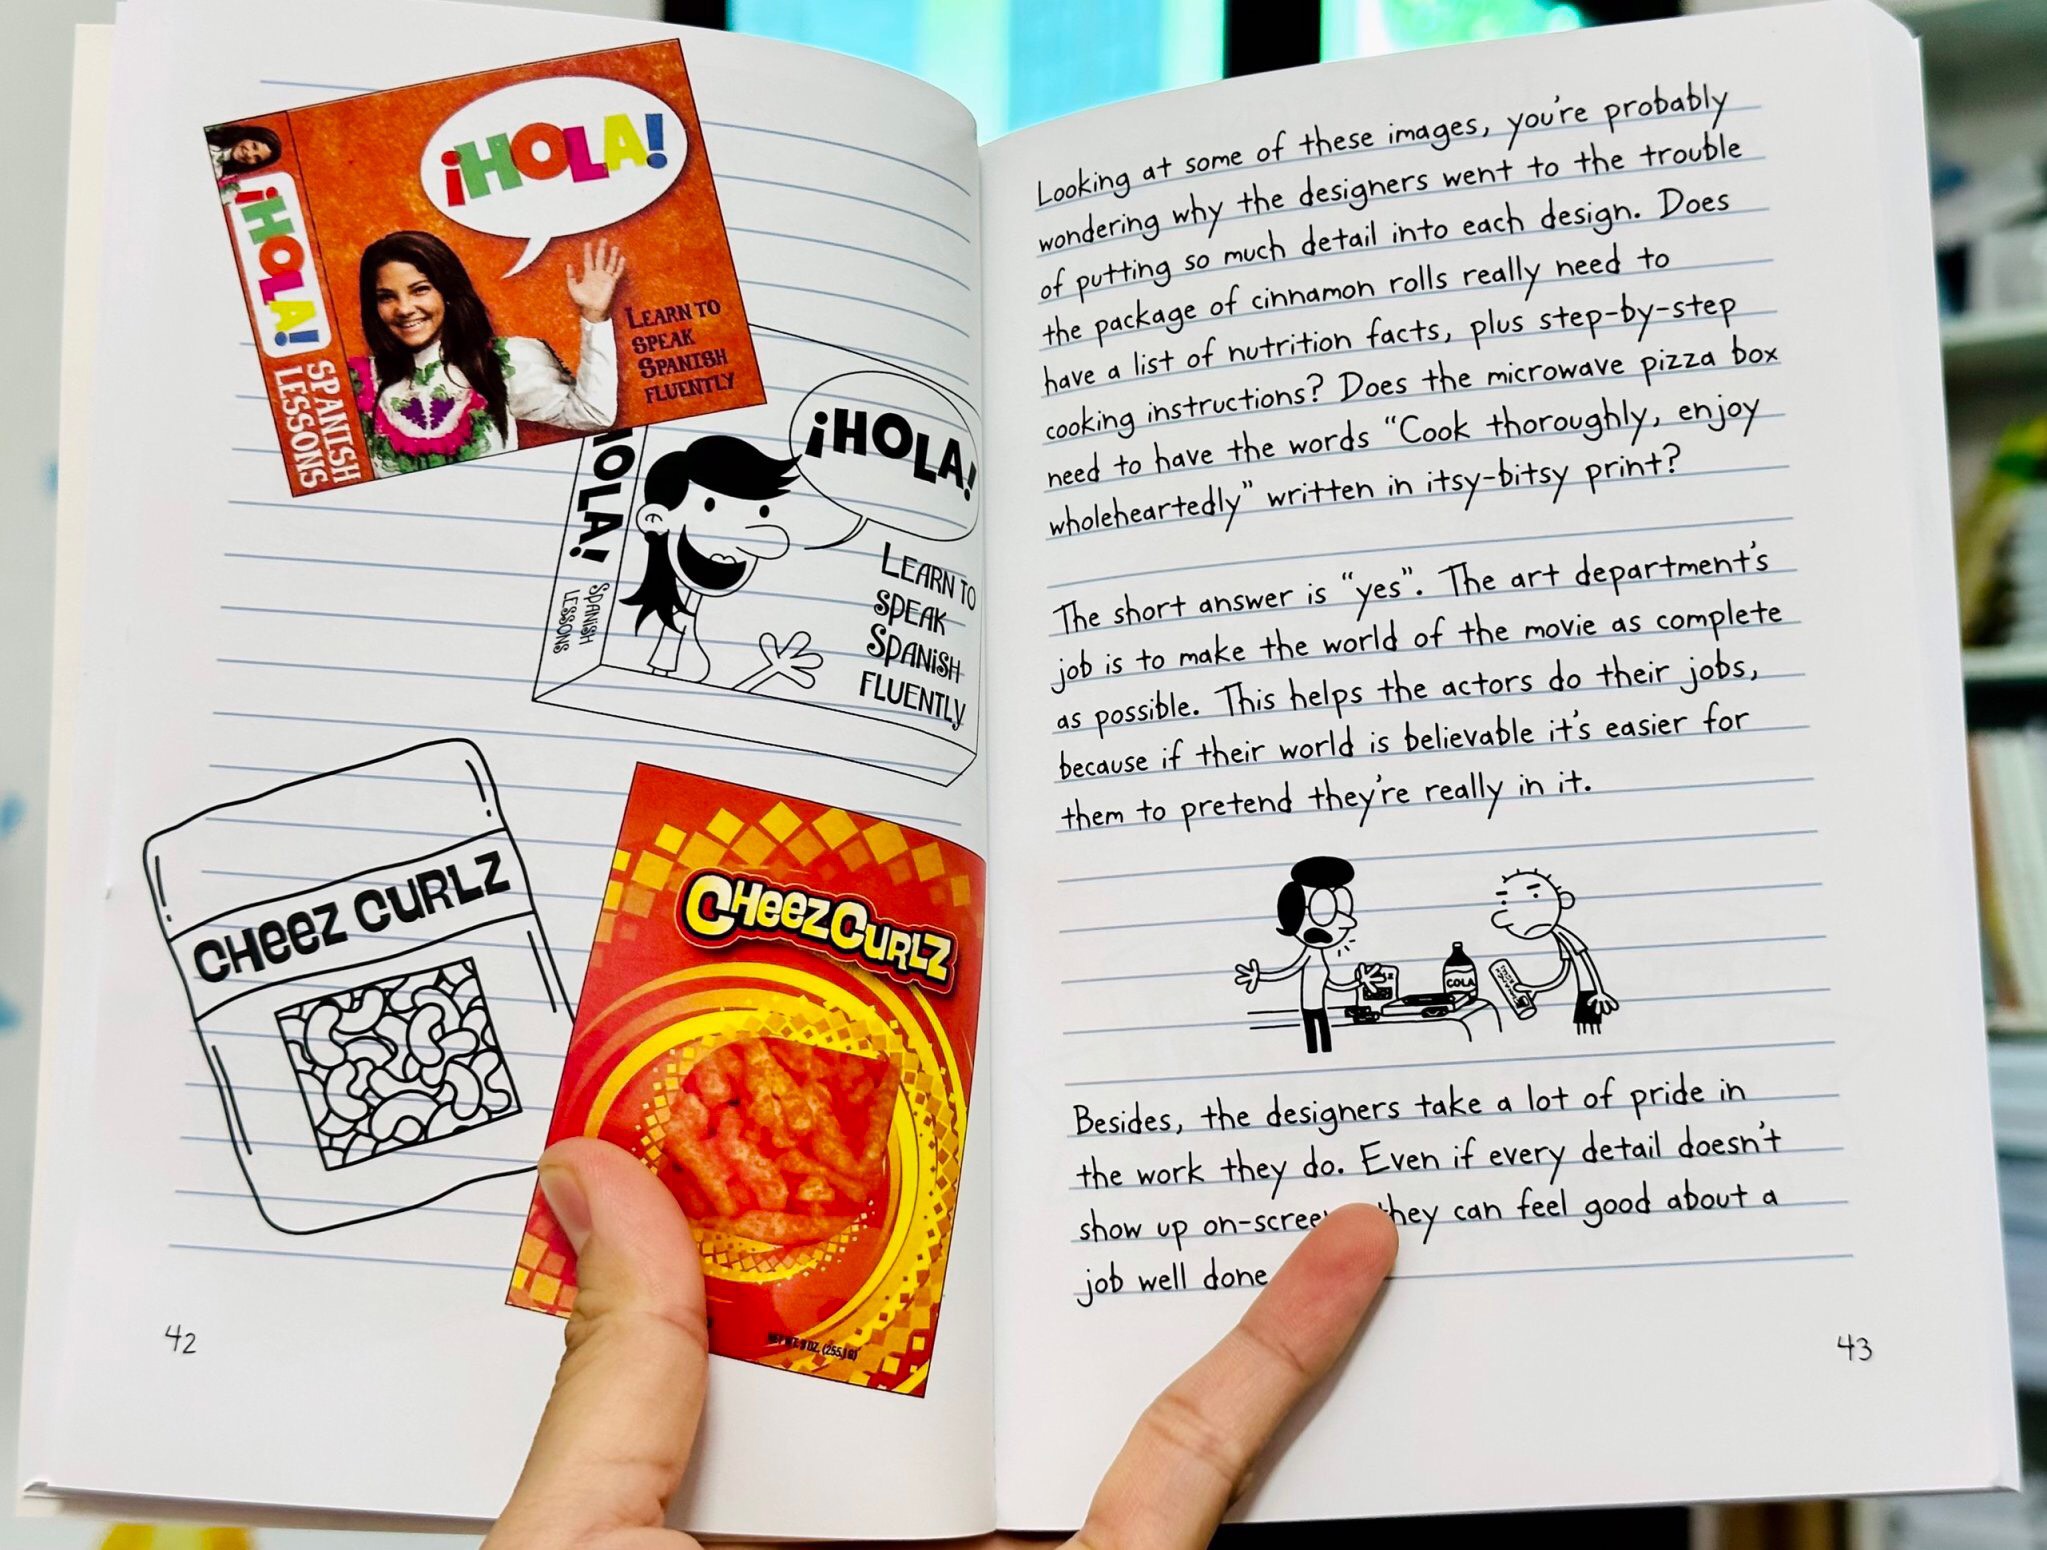 ¡HOLA!
¡HOLA!
SPANISH
LESSONS
LEARN TO
SPEAK
SPANISH
FLUENTLY
HOLA!
SPANISH
LESSONS
¡HOLA!
LEARN TO
SPEAK
SPANISH
FLUENTLY
CHEEZ CURLZ
CHEEZ CURLZ
NET WT. 9 OZ. (255.1 G)
42
Looking at some of these images, you're probably
wondering why the designers went to the trouble
of putting so much detail into each design. Does
the package of cinnamon rolls really need to
have a list of nutrition facts, plus step-by-step
cooking instructions? Does the microwave pizza box
need to have the words “Cook thoroughly, enjoy
wholeheartedly” written in itsy-bitsy print?
The short answer is “yes”. The art department's
job is to make the world of the movie as complete
as possible. This helps the actors do their jobs,
because if their world is believable it's easier for
them to pretend they're really in it.
COLA
Besides, the designers take a lot of pride in
the work they do. Even if every detail doesn't
show up on-screen, they can feel good about a
job well done
43